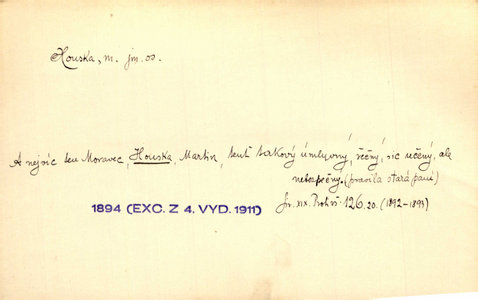 Houska, m. jm. os.
A nejvíc ten Moravec, Houska, Martin, tenť takový úmluvný, řečný, sic učený, ale
nebezpečný. (pravila stará paní)
1894 (EXC. Z 4. VYD. 1911)
Jir. XIX. Proti vš. 126.20. (1892–1893)